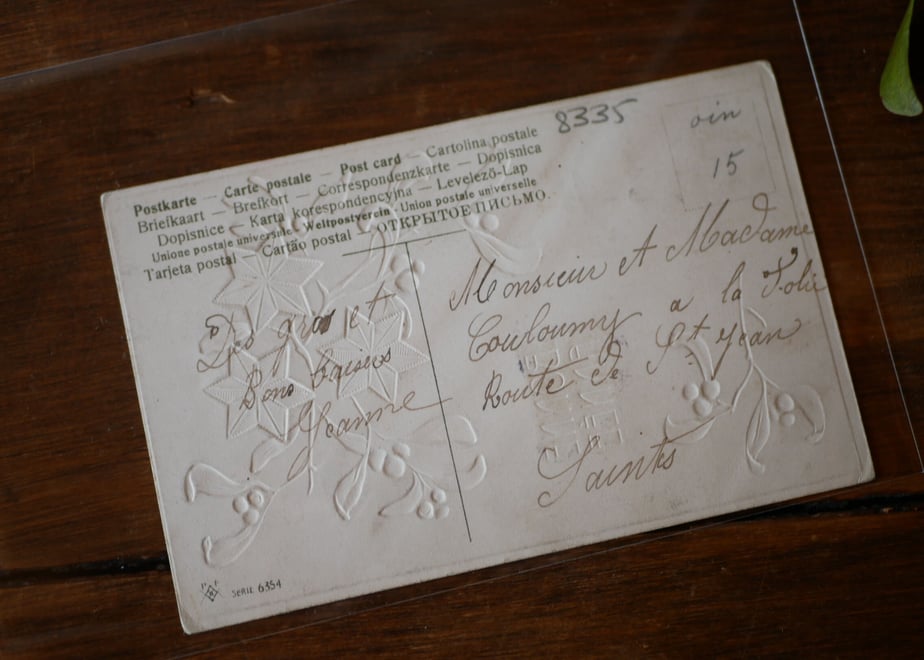 8335
oin
15
Postkarte — Carte postale — Post card — Cartolina postale
Briefkaart — Brefkort — Correspondenzkarte — Dopisnica
Dopisnice — Karta korespondencyjna — Levelező-Lap
Unione postale universale — Weltpostverein. Union postale universelle
Tarjeta postal — Cartão postal — ОТКРЫТОЕ ПИСЬМО.
Des gros et
Bons baisers
Jeanne
Monsieur et Madame
Couloumy a la Folie
Route de St Jean
Saintes
SERIE 6354